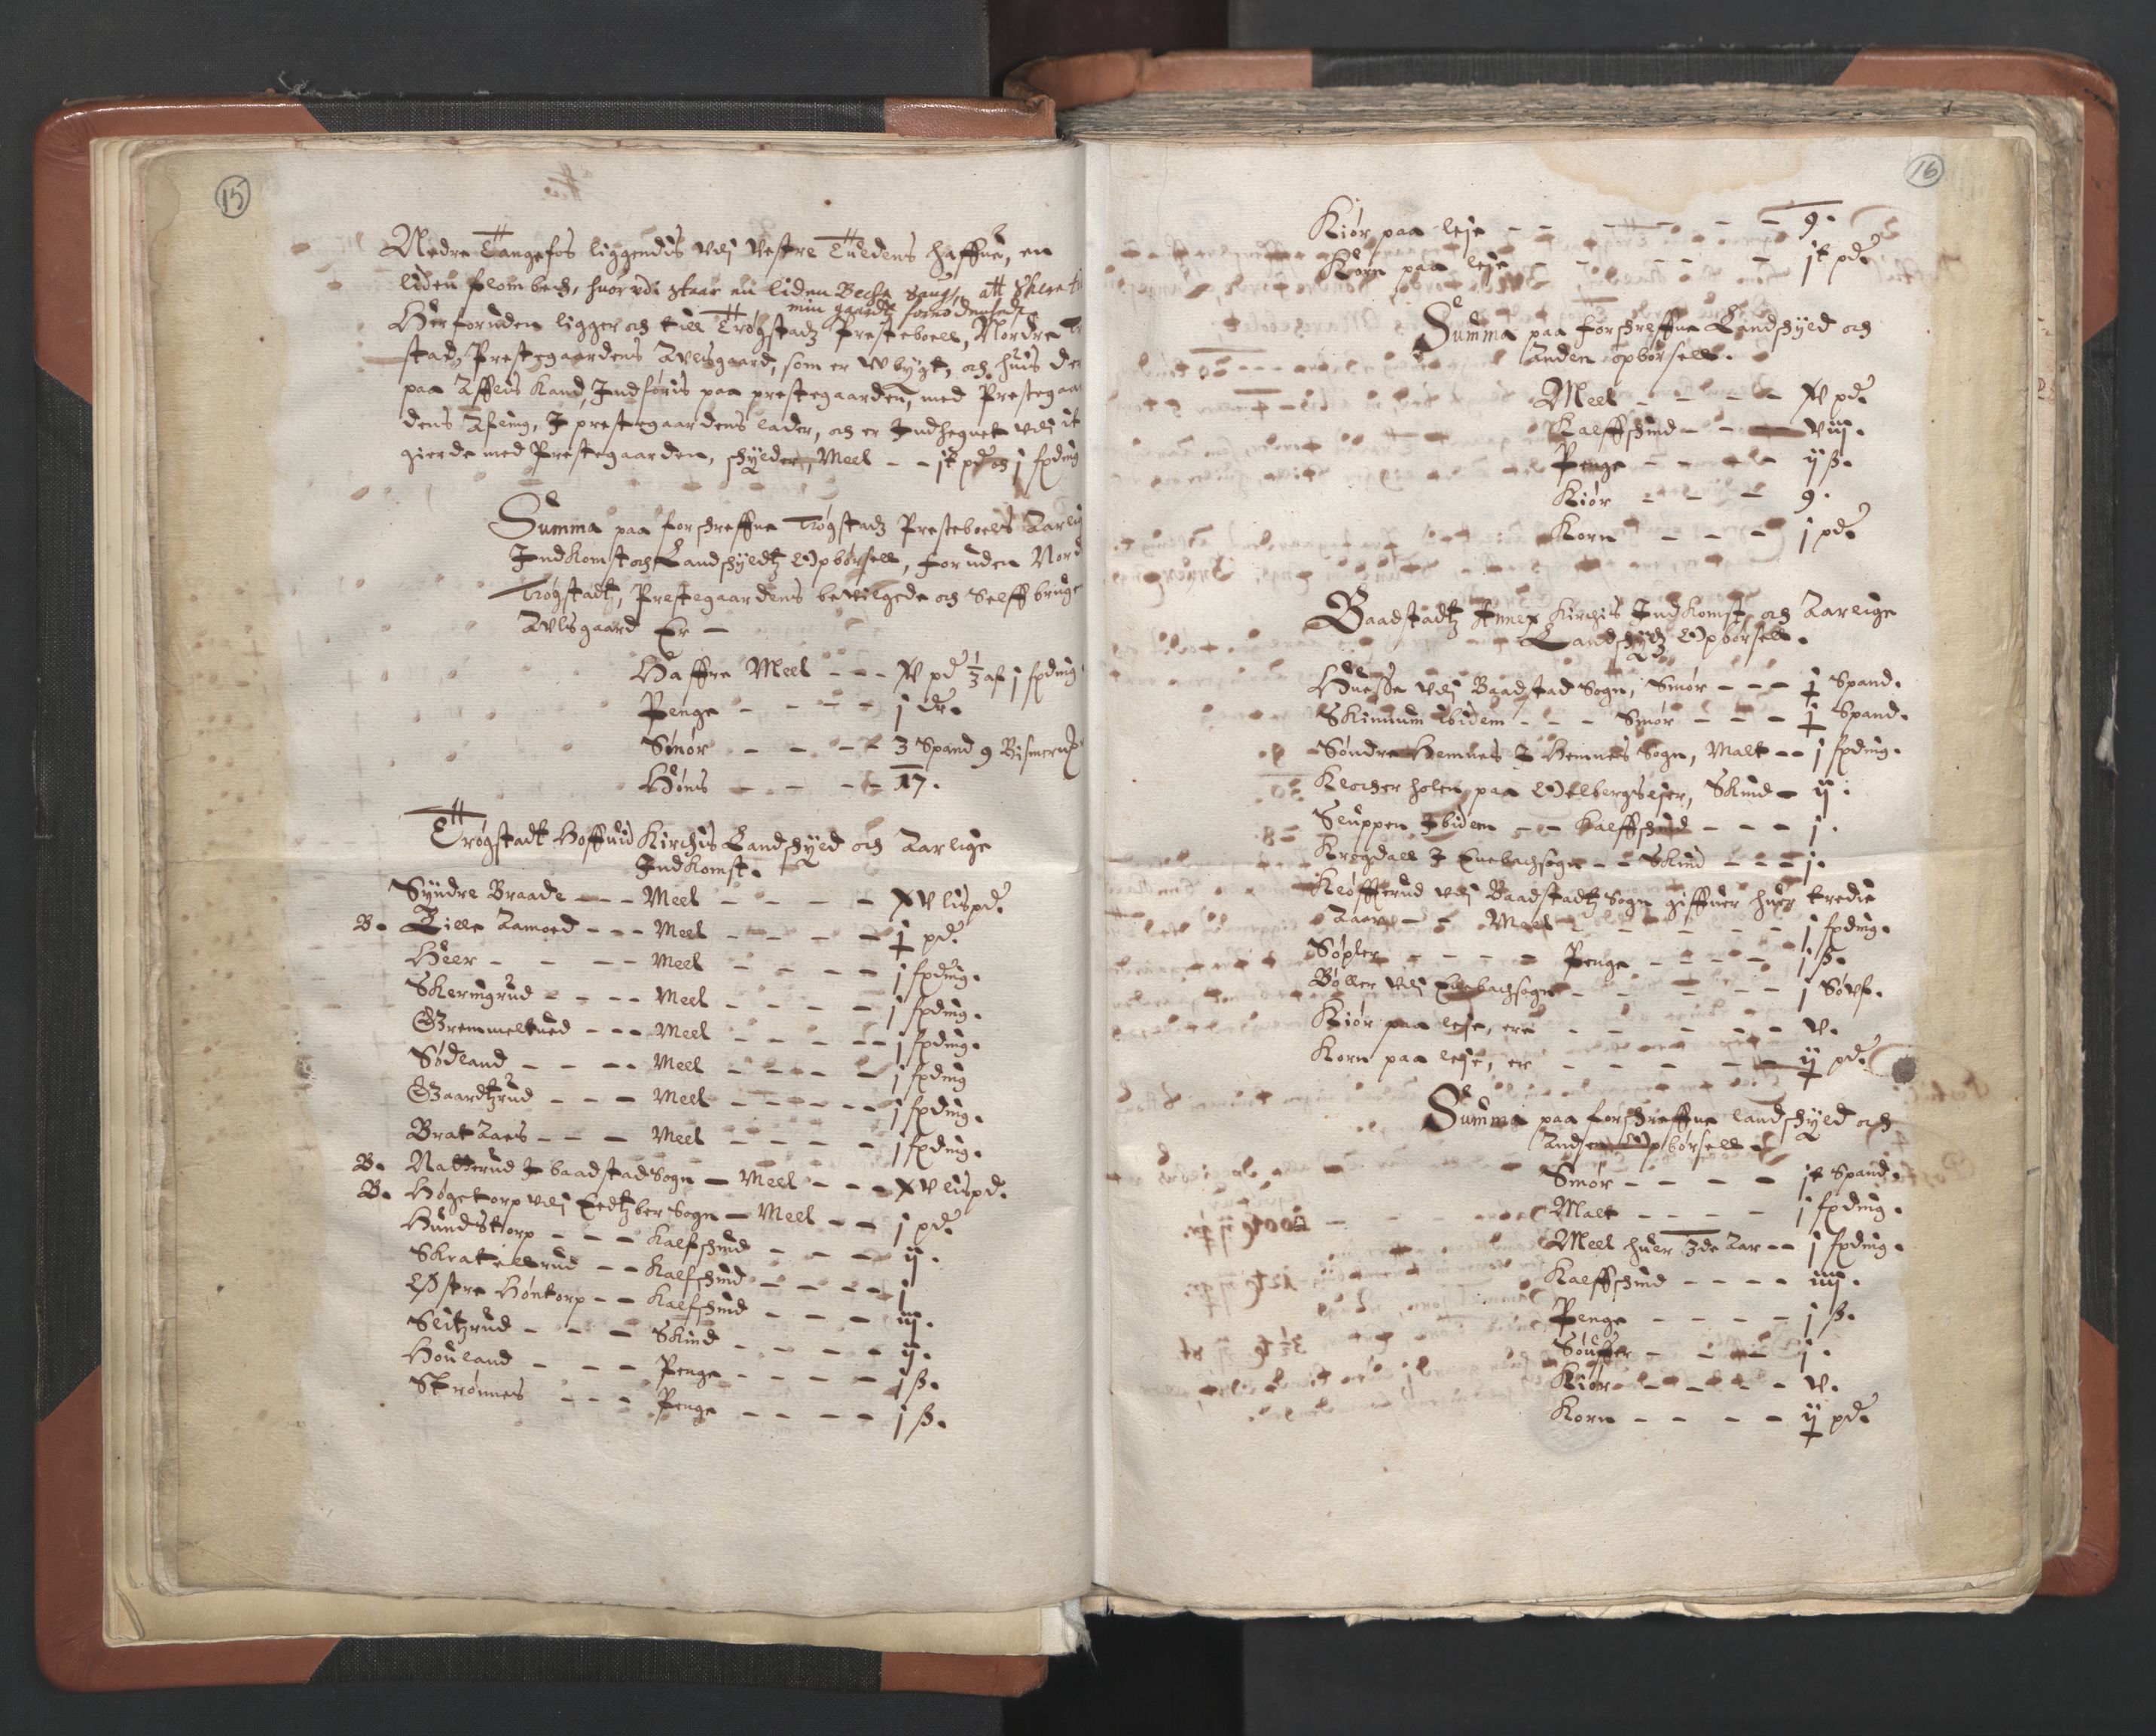 15
Nedre Tangefos liggendis vdj Vestre Tueldens haffne, en
liden flombech, huorvdi staar en liden Beche Saug, att skere til
min gaardz fornødenhed.
Herforuden ligger och till Trøgstadz Presteboell, Nordre Trøg
stadz Prestegaardens Avlsgaard, som er vbygt, och huis der
paa Affles kand, Indføris paa prestegaarden, med Prestegaar
dens Afling, I prestegaardens lader, och er Indhegnet vdj it
gierde med Prestegaarden, skylder, Meel - - jt pd och j fpding
Summa paa forschreffne Trøgstadz Presteboels Aarlig
Indkomst och Landskyldtz Opbørsell, foruden Nord
Trøgstadt, Prestegaardens bevilgede och Selffbruge
Avlsgaard Er -
Haffre Meel - - - XV pd 1/3 af j fpding
Penge - - - - j dr.
Smør - - - - 3 Spand 9 Bismerp
Høns - - - - 17.
Trøgstadt Hoffuid Kirchis Landskyld och Aarlige
Indkomst.
Syndre Braade - - - Meel - - - - XV lispd.
B. Lille Aamoed - - - Meel - - - - j pd.
Heer - - - - Meel - - - - j fpding.
Skeringrud - - - - Meel - - - - j fpding.
Gremmeltued - - - Meel - - - - j fpding.
Sødland - - - - Meel - - - - j fpding
Gaardtzrud - - - Meel - - - - j fpding.
Brat Aaes - - - Meel - - - - j fpding.
B. Natterud I baadstad Sogn - Meel - - - XV lispd.
B. Høgetorp vdj Eedtzber Sogn - Meel - - j pd.
Hundstorp - - - Kalfskind - - - ij.
Skratellrud - - Kalfskind - - - - j
Østre Høntorp - - Kalfskind - - - iij.
Slitzrud - - - Skind - - - - ij.
Houland - - - Penge - - - - j ß.
Strønnes - - - Penge - - - - j ß.
16
Kiør paa leje - - - - - - 9.
Korn paa leje - - - - - - jt pd.
Summa paa forschreffne Landskyld och
Anden opbørsell.
Meel - - - - XV pd.
Kalffskind - - - viij.
Penge - - - - ij ß.
Kiør - - - 9.
Korn - - - j pd.
Baadstadtz Annex Kirchis Indkomst, och Aarlige
Landskyldz Opbørsell.
Huesse vdj Baadstad Sogn, Smør - - - j Spand.
Skinnum Ibidem - - - Smør - - - j Spand.
Søndre Hemnes I Hemnes Sogn, Malt - - j fpding.
Klocherholen paa Ollbergsejer, Skind - ij.
Sluppen Ibidem - - Kalffskind - - - j.
Krogdall I Enebachsogn - - Skind - - - j.
Kløfferud vdj Baadstadtz Sogn giffuer huer tredie
Aar - - Meel - - - - - j fpding.
Søpler - - - - Penge - - - - j ß.
Bøller vdj Enebachsogn - - - - - j Søvf.
Kiør paa leje, ere - - - - - v.
Korn paa leje, er - - - - - ij pd.
Summa paa forschreffne landskyld och
Anden Opbørsell.
Smør - - - - jt Spand.
Malt - - - - j fpding.
Meel huer 3de Aar - - j fpding.
Kalffskind - - - - iiij.
Penge - - - - j ß.
Søuffer - - - j.
Kiør - - - - v.
Korn - - - - ij pd.